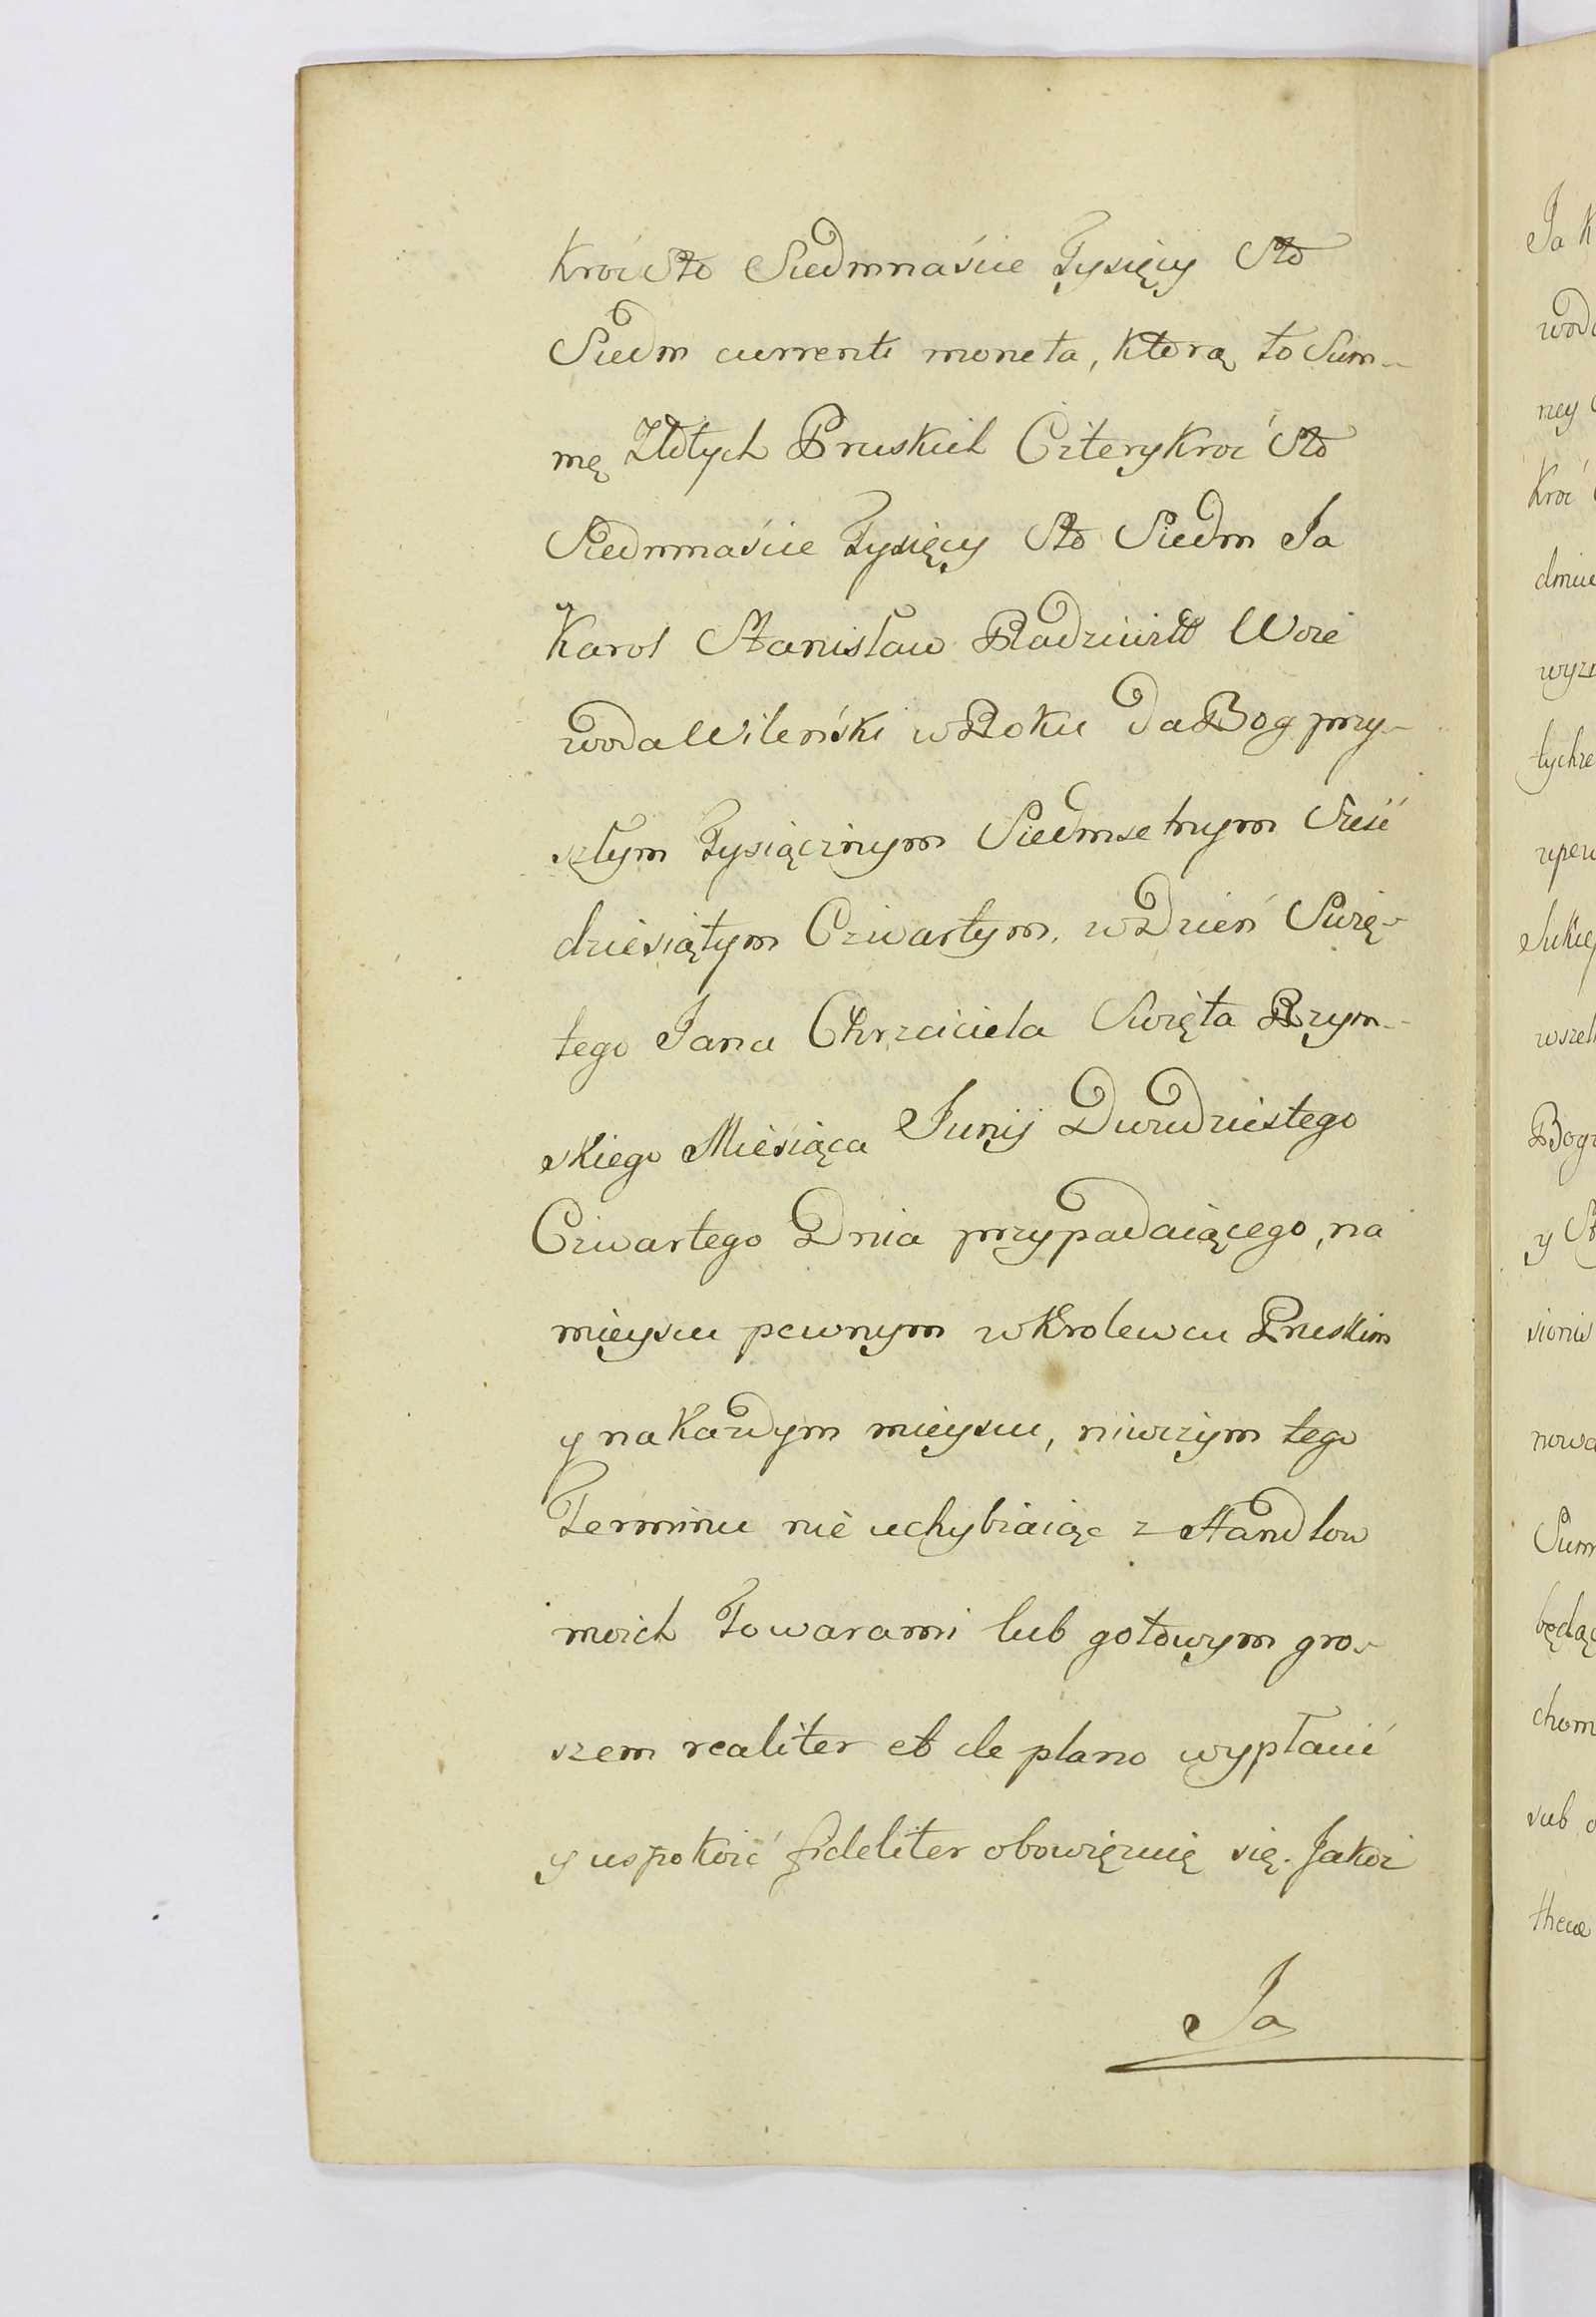 kroć Sto Siedmnaście Tysięcy Sto
Siedm currenti moneta, ktorą to Sum-
mę Złotych Pruskich Czterykroć Sto
Siedmnaście Tysięcy Sto Siedm Ja
Karol Stanisław Radziwiłł Woie
woda Wileński w Roku Da Bog przy-
szłym Tysiącznym Siedmsetnym Sześć
dziesiątym Czwartym, w Dzień Swię-
tego Jana Chrzciciela Swięta Rzym-
skiego Miesiąca Junij Dwudziestego
Czwartego Dnia przypadaiącego, na
mieyscu pewnym w Krolewcu Pruskim
y na Każdym mieyscu, niwczym tego
Terminu nie uchybiaiąc z Handlow
moich Towarami lub gotowym gro-
szem realiter et de plano wypłacić
y uspokoić fideliter obowięzuię się. Jakoż
Ja
Ja K
woda
ney
kroć
dmie
wyzn
tychże
upew
Sukce
wszel
Bog
y St
sionis
nowa
Sum
będąc
chom
sub o